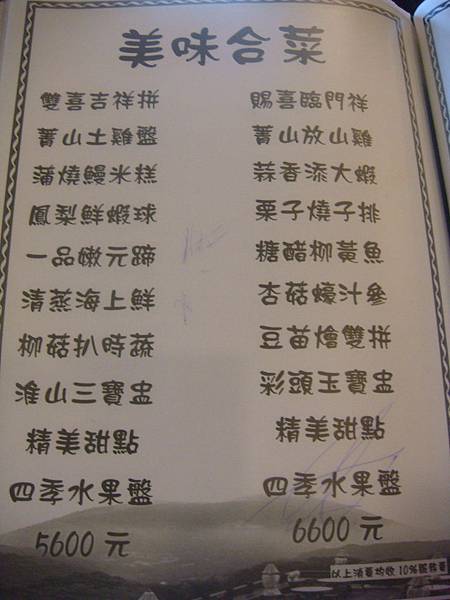 美味合菜
雙喜吉祥拼
菁山土雞盤
蒲燒鰻米糕
鳳梨鮮蝦球
一品嫩元蹄
清蒸海上鮮
柳菇扒時蔬
淮山三寶盅
精美甜點
四季水果盤
5600元
賜喜臨門祥
菁山放山雞
蒜香添大蝦
栗子燒子排
糖醋柳黃魚
杏菇蠔汁參
豆苗燴雙拼
彩頭玉寶盅
精美甜點
四季水果盤
6600元
以上消費均收10%服務費